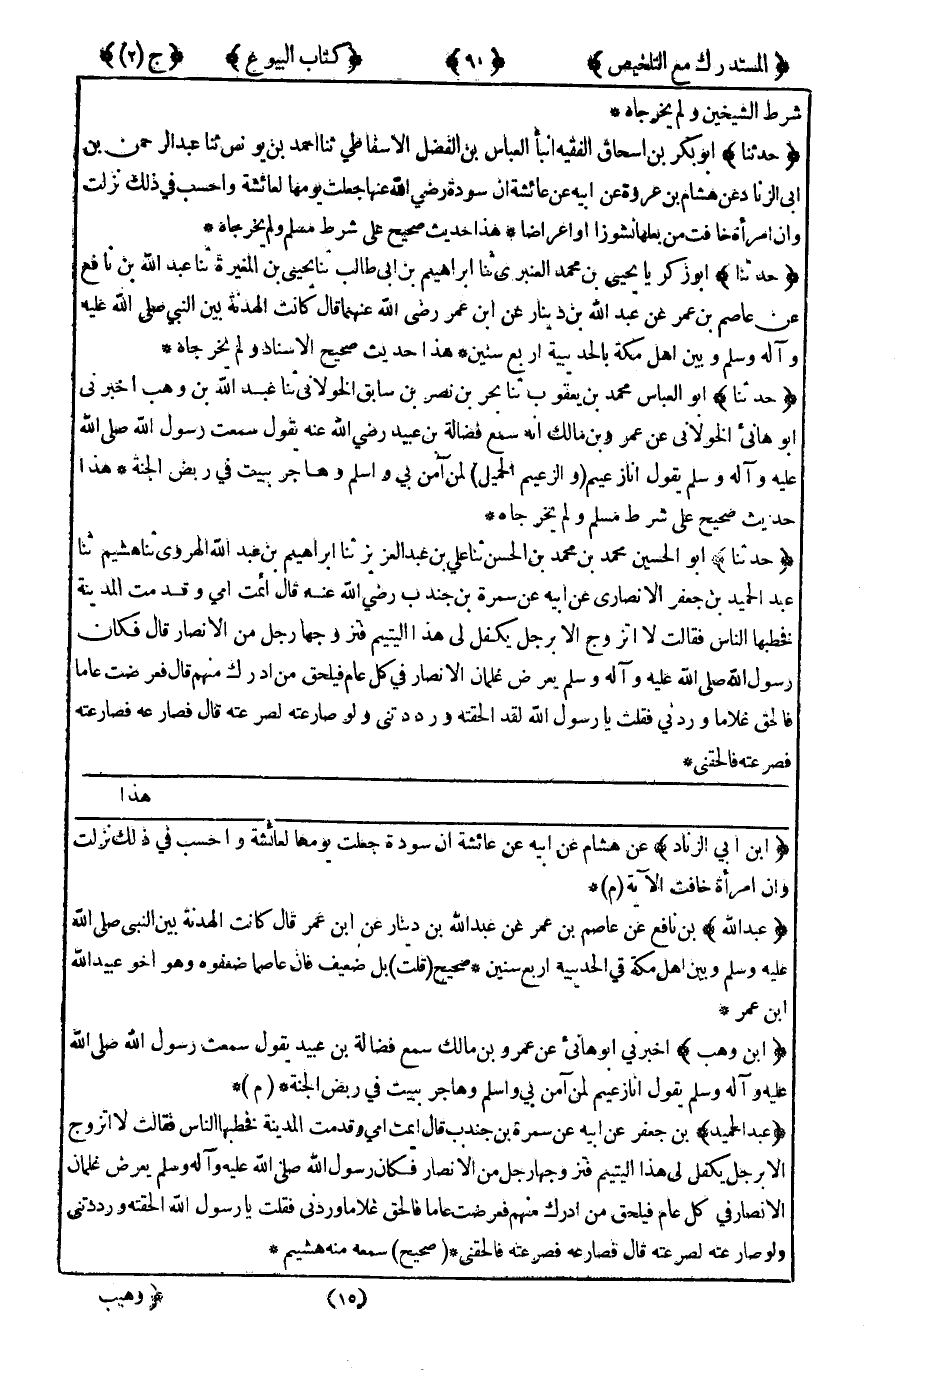 ﴿ المستدرك مع التلخيص ﴾ ﴿ ٩٠ ﴾ ﴿ كتاب البيوع ﴾ ﴿ ج (٢) ﴾
شرط الشيخين ولم يخرجاه *
﴿ حدثنا ﴾ ابو بكر بن اسحاق الفقيه انبأ العباس بن الفضل الاسفاطي ثنا احمد بن يونس ثنا عبدالرحمن بن
ابى الزناد عن هشام بن عروة عن ابيه عن عائشة ان سودة رضي الله عنها جعلت يومها لعائشة واحسب في ذلك نزلت
وان امرأة خافت من بعلها نشوزا او اعراضا * هذا حديث صحيح على شرط مسلم ولم يخرجاه *
﴿ حدثنا ﴾ ابو زكريا يحيى بن محمد العنبرى ثنا ابراهيم بن ابى طالب ثنا يحيى بن المغيرة ثنا عبد الله بن نافع
عن عاصم بن عمر عن عبد الله بن دينار عن ابن عمر رضى الله عنهما قال كانت الهدنة بين النبي صلى الله عليه
وآله وسلم وبين اهل مكة بالحديبية اربع سنين * هذا حديث صحيح الاسناد ولم يخرجاه *
﴿ حدثنا ﴾ ابو العباس محمد بن يعقوب ثنا بحر بن نصر بن سابق الخولانى ثنا عبد الله بن وهب اخبرنى
ابو هانئ الخولانى عن عمرو بن مالك انه سمع فضالة بن عبيد رضي الله عنه يقول سمعت رسول الله صلى الله
عليه وآله وسلم يقول انا زعيم (والزعيم الحميل) لمن آمن بي واسلم وهاجر ببيت في ربض الجنة * هذا
حديث صحيح على شرط مسلم ولم يخرجاه *
﴿ حدثنا ﴾ ابو الحسين محمد بن محمد بن الحسن ثنا علي بن عبد العزيز ثنا ابراهيم بن عبد الله الهروى ثنا هشيم ثنا
عبد الحميد بن جعفر الانصارى عن ابيه عن سمرة بن جندب رضي الله عنه قال أيمت امي وقدمت المدينة
فخطبها الناس فقالت لا اتزوج الا برجل يكفل لى هذا اليتيم فتزوجها رجل من الانصار قال فكان
رسول الله صلى الله عليه وآله وسلم يعرض غلمان الانصار في كل عام فيلحق من ادرك منهم قال فعرضت عاما
فالحق غلاما وردني فقلت يا رسول الله لقد الحقته ورددتنى ولو صارعته لصرعته قال فصارعه فصارعته
فصرعته فالحقنى *
هذا
﴿ ابن ابي الزناد ﴾ عن هشام عن ابيه عن عائشة ان سودة جعلت يومها لعائشة واحسب في ذلك نزلت
وان امرأة خافت الآية (م) *
﴿ عبدالله ﴾ بن نافع عن عاصم بن عمر عن عبدالله بن دينار عن ابن عمر قال كانت الهدنة بين النبى صلى الله
عليه وسلم وبين اهل مكة في الحديبية اربع سنين * صحيح (قلت) بل ضعيف فان عاصما ضعفوه وهو اخو عبيدالله
ابن عمر *
﴿ ابن وهب ﴾ اخبرني ابو هانئ عن عمرو بن مالك سمع فضالة بن عبيد يقول سمعت رسول الله صلى الله
عليه وآله وسلم يقول انا زعيم لمن آمن بي واسلم وهاجر ببيت في ربض الجنة * (م) *
﴿ عبدالحميد ﴾ بن جعفر عن ابيه عن سمرة بن جندب قال ايمت امى وقدمت المدينة فخطبها الناس فقالت لا اتزوج
الا برجل يكفل لى هذا اليتيم فتزوجها رجل من الانصار فكان رسول الله صلى الله عليه وآله وسلم يعرض غلمان
الانصار في كل عام فيلحق من ادرك منهم فعرضت عاما فالحق غلاما وردنى فقلت يا رسول الله الحقته ورددتنى
ولو صارعته لصرعته قال فصارعه فصرعته فالحقنى * (صحيح) سمعه منه هشيم *
(١٥) ﴿ وهيب